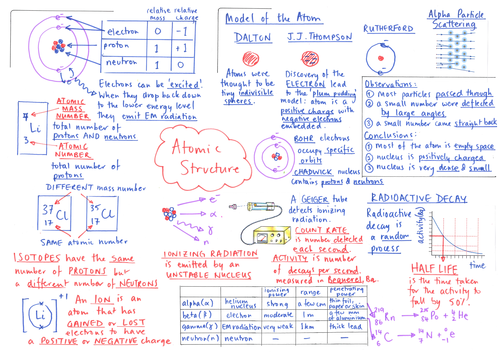 relative relative
mass charge
electron 0 -1
proton 1 +1
neutron 1 0
Electrons can be 'excited'.
When they drop back down
to the lower energy level
they emit EM radiation
ATOMIC
MASS
NUMBER
Li
3
total number of
protons AND neutrons
ATOMIC
NUMBER
total number of
protons
DIFFERENT mass number
37
17 Cl
35
17 Cl
SAME atomic number
ISOTOPES have the same
number of PROTONS but
a different number of NEUTRONS
[Li]+1
An ION is an
atom that has
GAINED or LOST
electrons to have
a POSITIVE or NEGATIVE charge
Atomic
Structure
Model of the Atom
DALTON
Atoms were
thought to be
tiny indivisible
spheres.
J.J. THOMPSON
Discovery of the
ELECTRON lead
to the plum pudding
model: atom is a
positive charge with
negative electrons
embedded.
BOHR electrons
occupy specific
orbits
CHADWICK nucleus
contains protons & neutrons
RUTHERFORD
Alpha Particle
Scattering
Observations:
1 most particles passed through
2 a small number were deflected
by large angles
3 a small number came straight back
Conclusions:
1 most of the atom is empty space
2 nucleus is positively charged
3 nucleus is very dense & small
e
α
γ
n
IONIZING RADIATION
is emitted by an
UNSTABLE NUCLEUS
A GEIGER TUBE
detects ionizing
radiation.
COUNT RATE
is number detected
each second.
ACTIVITY is number
of decays per second.
measured in Bequerel, Bq.
ionizing power range penetrating power
alpha(α) helium nucleus strong a few cm thin foil, paper or skin
beta(β) electron moderate 1m a few mm of aluminium
gamma(γ) EM radiation very weak 1km thick lead
neutron(n) neutron
RADIOACTIVE DECAY
Radioactive
decay is
a random
process
activity
time
HALF LIFE
is the time taken
for the activity to
fall by 50%.
219
86 Rn
Po + 4
2 He
14
6 C
14
7 N + 0
-1 e